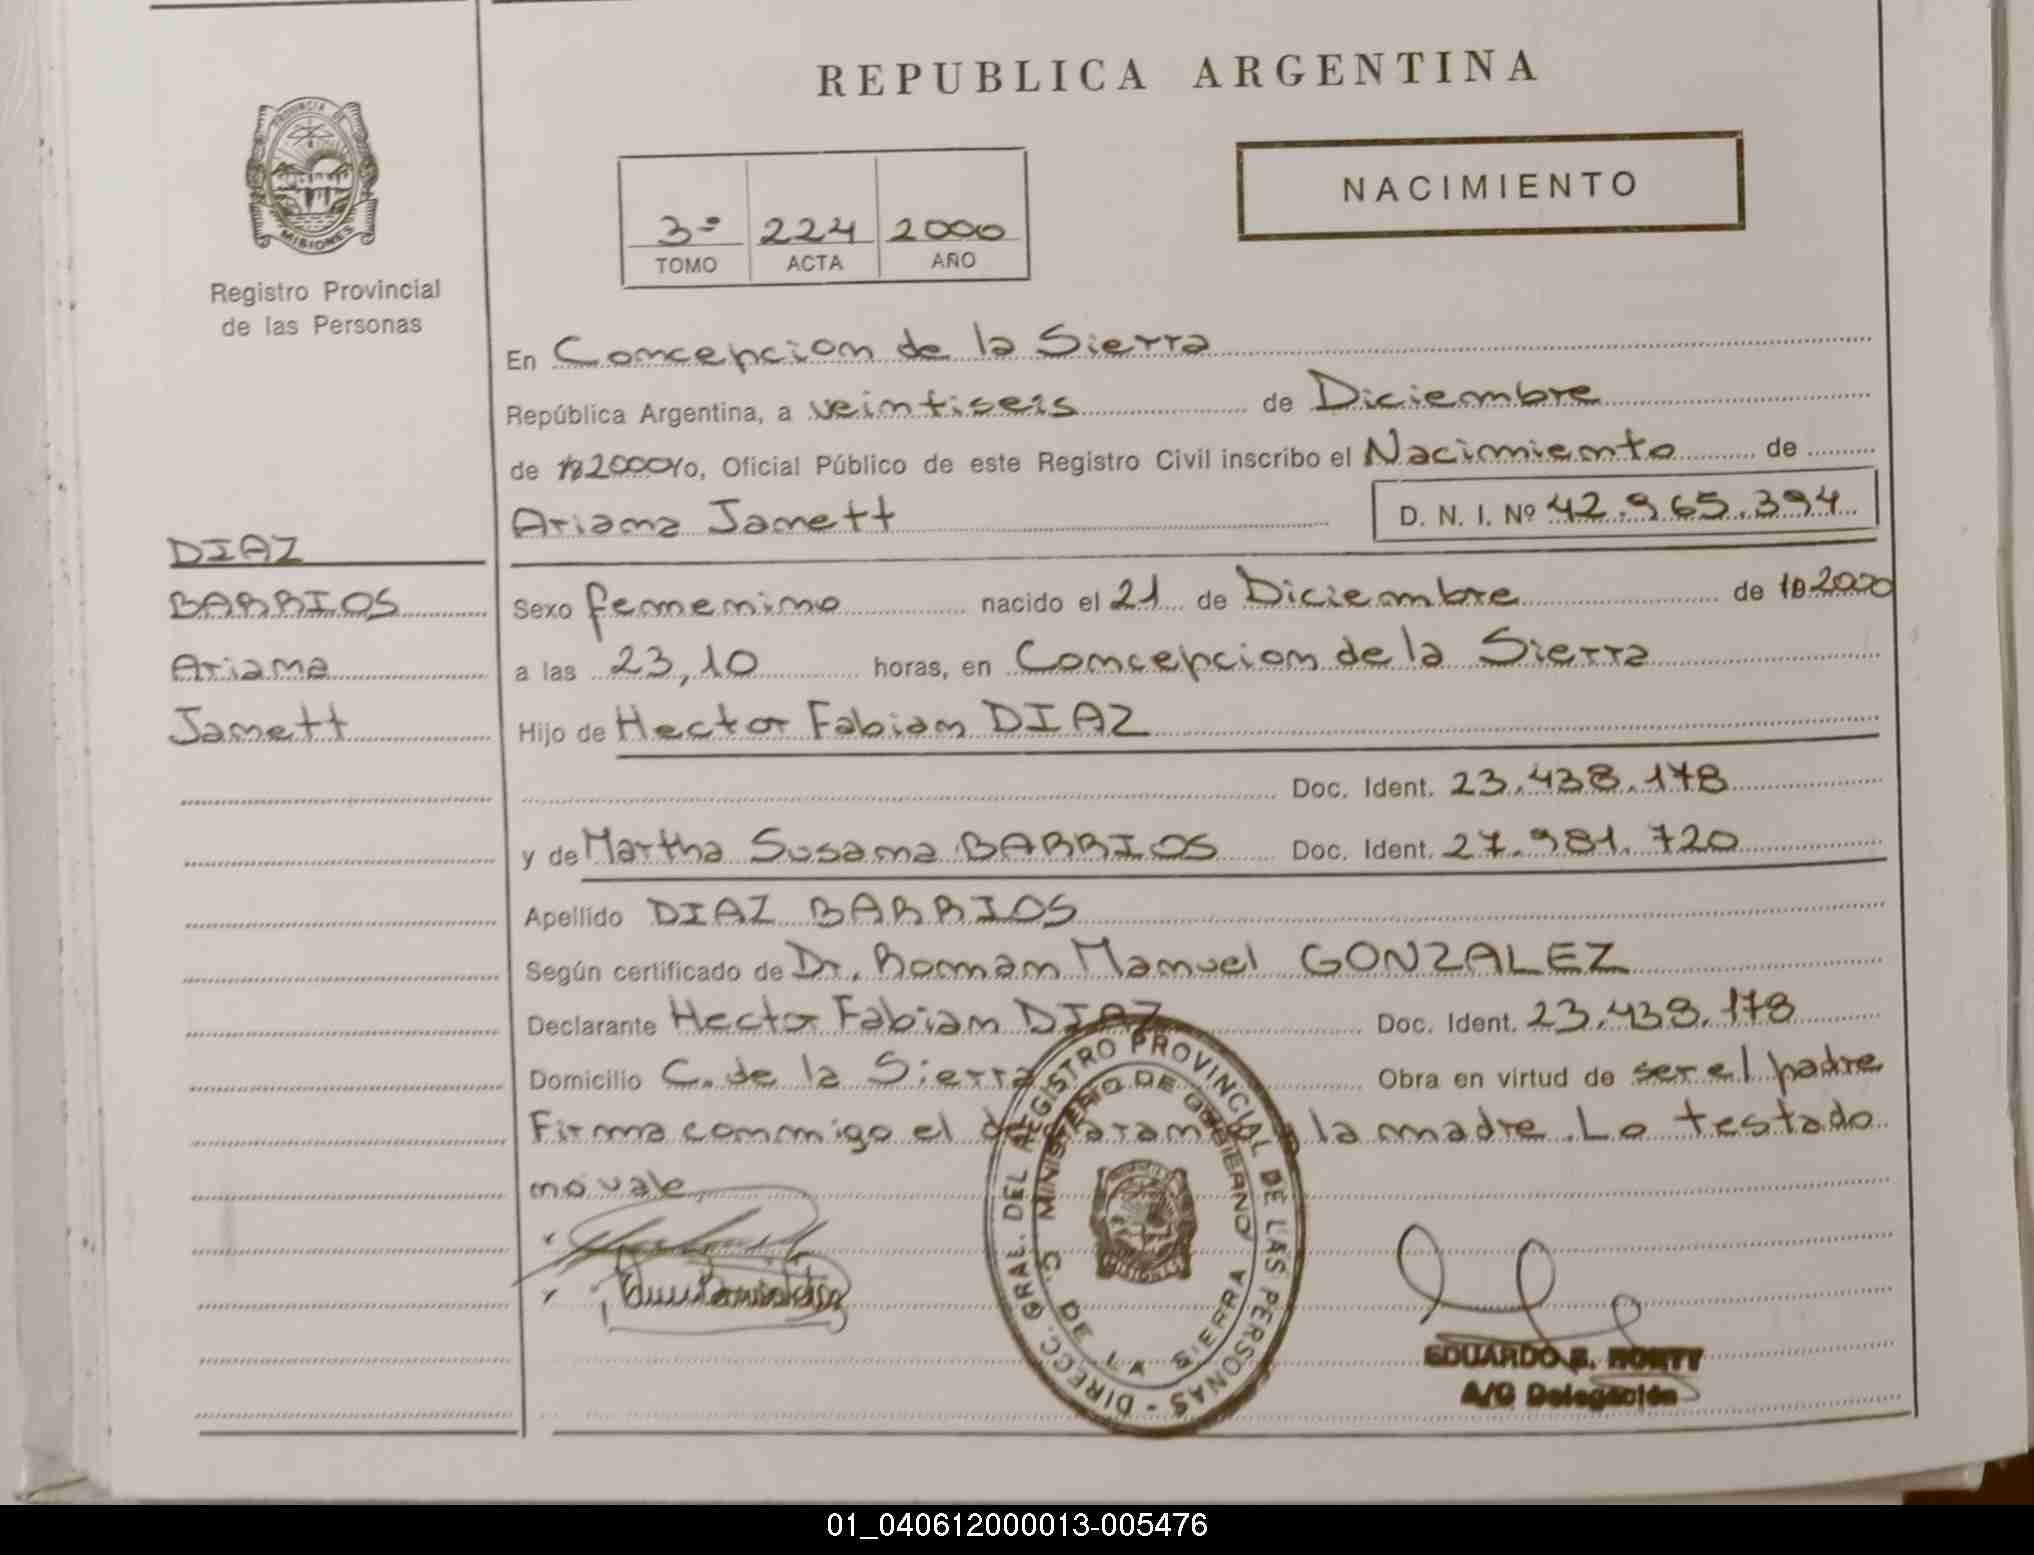 REPUBLICA ARGENTINA
PROVINCIA DE
MISIONES
Registro Provincial
de las Personas
NACIMIENTO
3º 224 2000
TOMO ACTA AÑO
En Concepcion de la Sierra
República Argentina, a veintiseis de Diciembre
de 2000 Yo, Oficial Público de este Registro Civil inscribo el Nacimiento de
Ariana Janett D. N. I. Nº 42.965.394
DIAZ
BARRIOS
Ariana
Janett
Sexo femenino nacido el 21 de Diciembre de 2000
a las 23,10 horas, en Concepcion de la Sierra
Hijo de Hector Fabian DIAZ
Doc. Ident. 23.438.178
y de Martha Susana BARRIOS Doc. Ident. 27.981.720
Apellido DIAZ BARRIOS
Según certificado de Dr. Roman Manuel GONZALEZ
Declarante Hector Fabian DIAZ Doc. Ident. 23.438.178
Domicilio C. de la Sierra Obra en virtud de ser el padre
Firma conmigo el la madre. Lo testado
no vale
DIRECC. GRAL. DEL REGISTRO PROVINCIAL DE LAS PERSONAS -
MINISTERIO DE GOBIERNO
C. DE LA SIERRA
MISIONES
EDUARDO
A/C Delegación
01_040612000013-005476